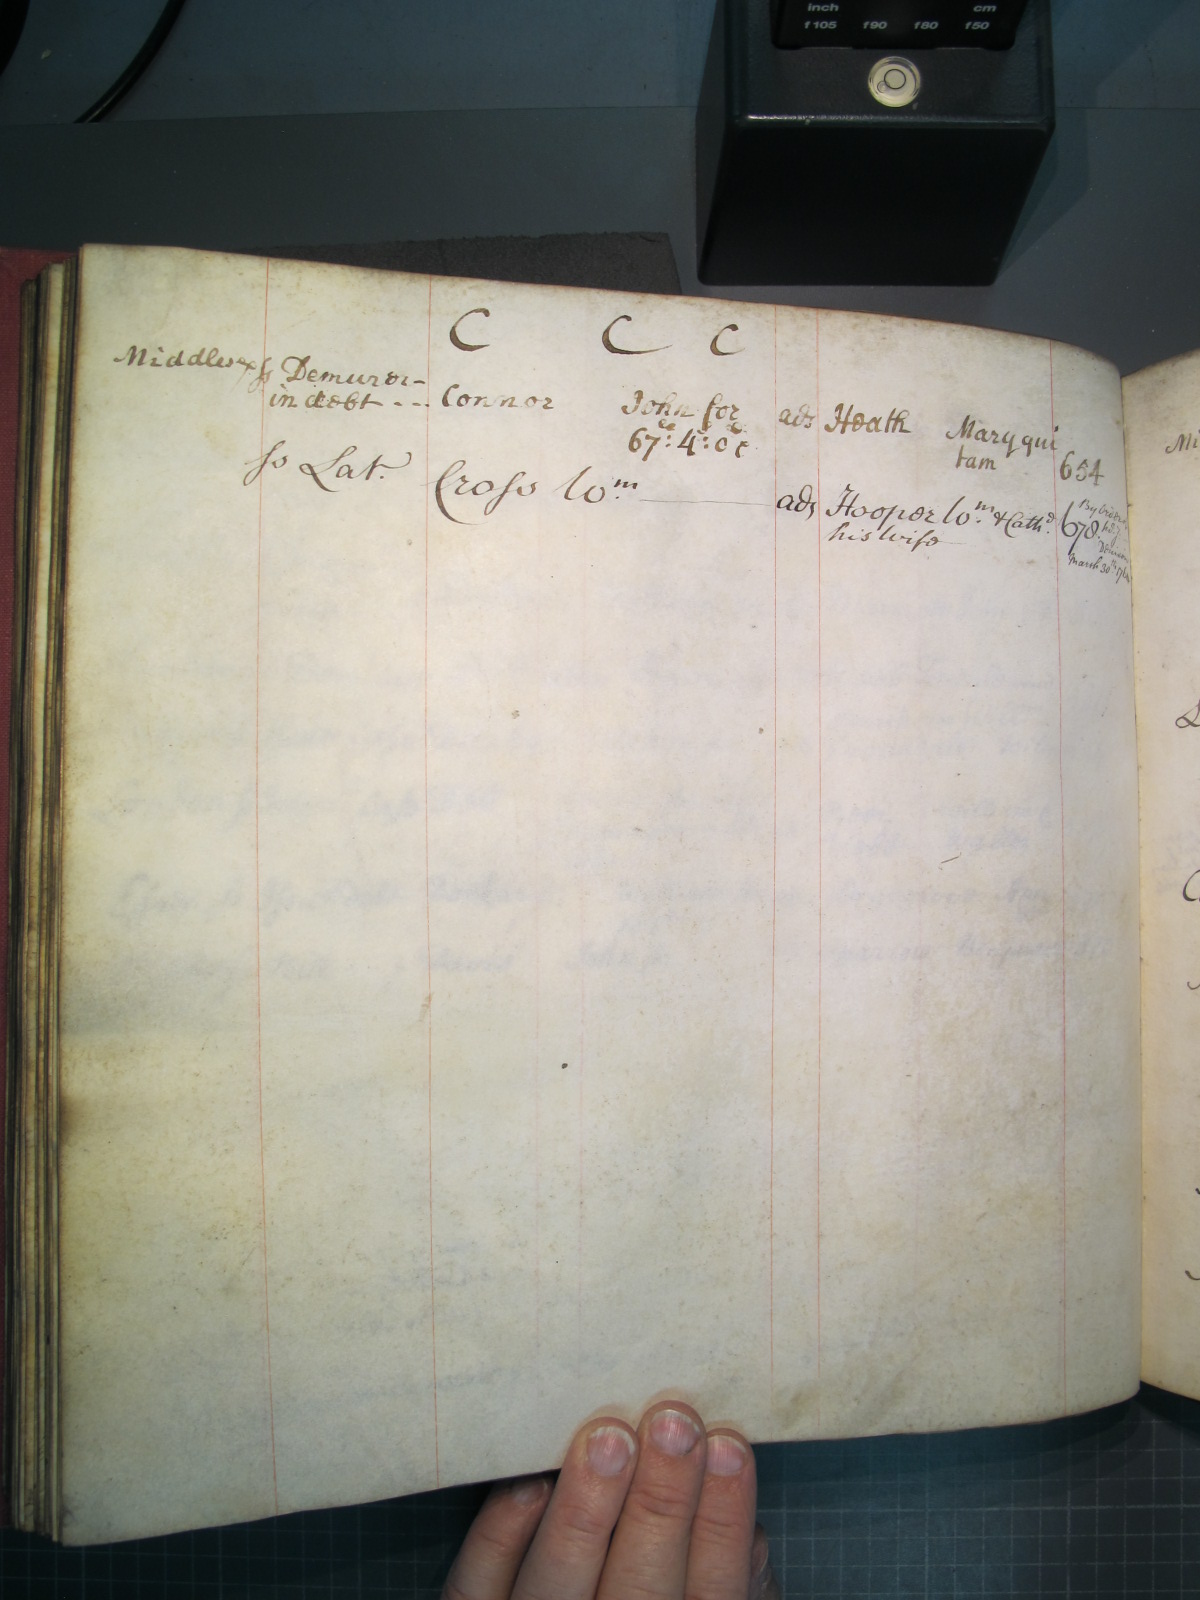 inch cm
f105 f90 f80 f50
C C C
Middlesex ss Demurer
in debt --- Connor John for ads Heath Mary qui
67:4:0 tam 654
ss Lat. Cross Wm. ads Hooper Wm. & Cath. 678. By
his wife
March 30th